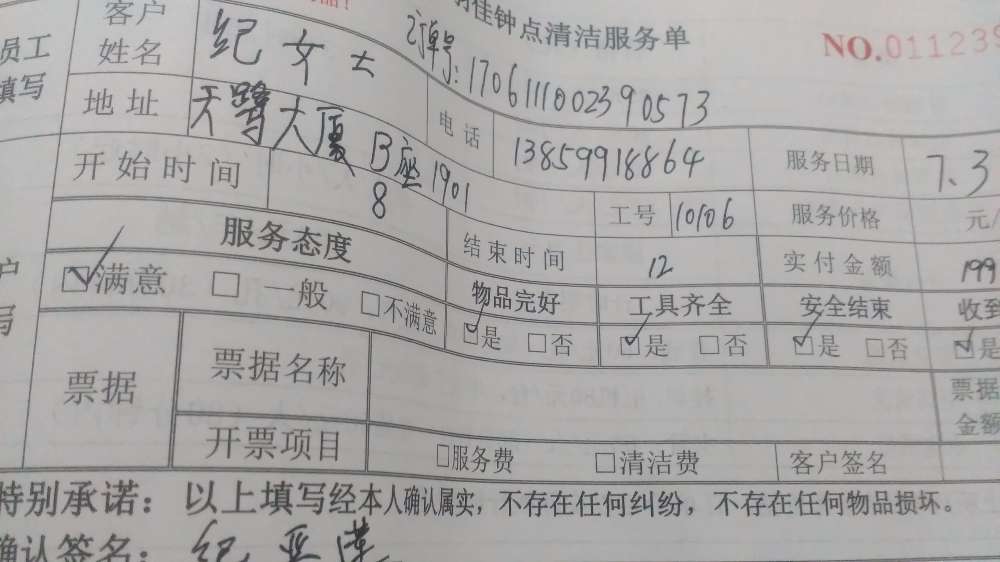 佳钟点清洁服务单
NO.011239
员工
填写
客户
姓名
纪女士
订单号:170611100239057​3
地址
天鹭大厦B座1901
电话
13859918864
服务日期
7.3
开始时间
8
工号
10106
服务价格
元/
服务态度
结束时间
12
实付金额
199
满意
一般
不满意
物品完好
工具齐全
安全结束
收到
是 否
是 否
是 否
是
票据
票据名称
票据
金额
开票项目
服务费
清洁费
客户签名
特别承诺：以上填写经本人确认属实，不存在任何纠纷，不存在任何物品损坏。
确认签名：纪